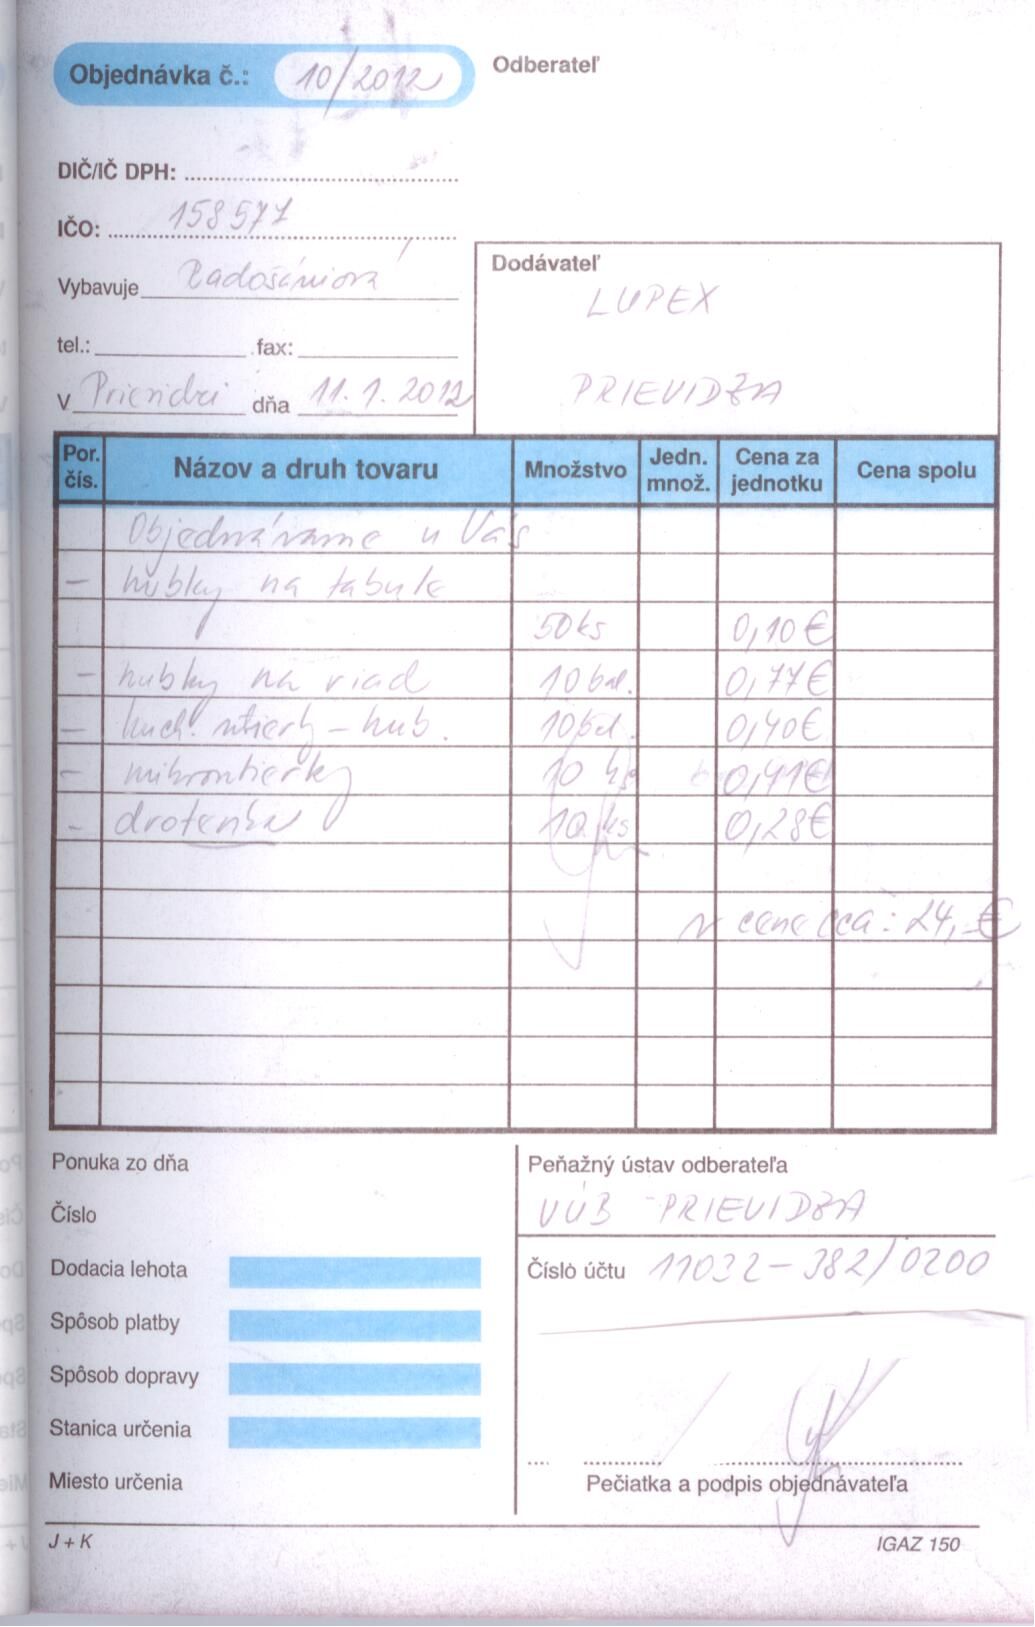 Objednávka č.: 10/2012
Odberateľ
DIČ/IČ DPH:
IČO: 158577
Vybavuje Radošániová
tel.: fax:
V Prievidzi dňa 11.1.2012
Dodávateľ
LUPEX
PRIEVIDZA
Por. čís. Názov a druh tovaru Množstvo Jedn. množ. Cena za jednotku Cena spolu
Objednávame u Vás
- hubky na tabule
50ks 0,10€
- hubky na riad 10bal. 0,77€
- kuch. utierky - hub. 10bal. 0,40€
- mikroutierky 10 ks 0,41€
- drotenka 10 ks 0,28€
v cene cca: 24,-€
Ponuka zo dňa
Číslo
Dodacia lehota
Spôsob platby
Spôsob dopravy
Stanica určenia
Miesto určenia
Peňažný ústav odberateľa
VÚB PRIEVIDZA
Číslo účtu 11032-382/0200
Pečiatka a podpis objednávateľa
J + K
IGAZ 150